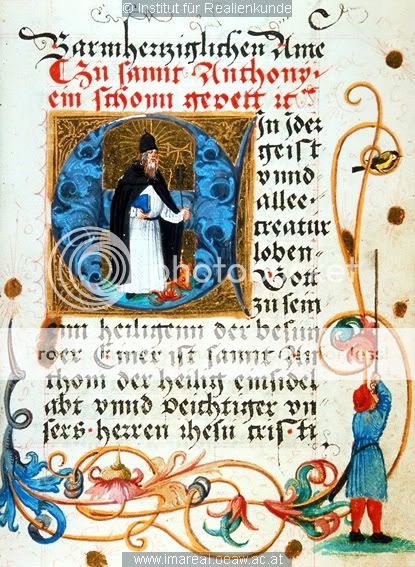 © Institut für Realienkunde
Barmhertziglichen Ame
Zu sannt Anthony.
ein schonn gepett
In Jder
geist
vnnd
allee-
creatur
loben
Gott
zu sein
photobucket
enn heiligenn der besun
der Einer ist sannt An
thoni der heilig einsidel
abt vnnd Beichtiger vn
sers herren ihesu cristi
www.imareal.oeaw.ac.at